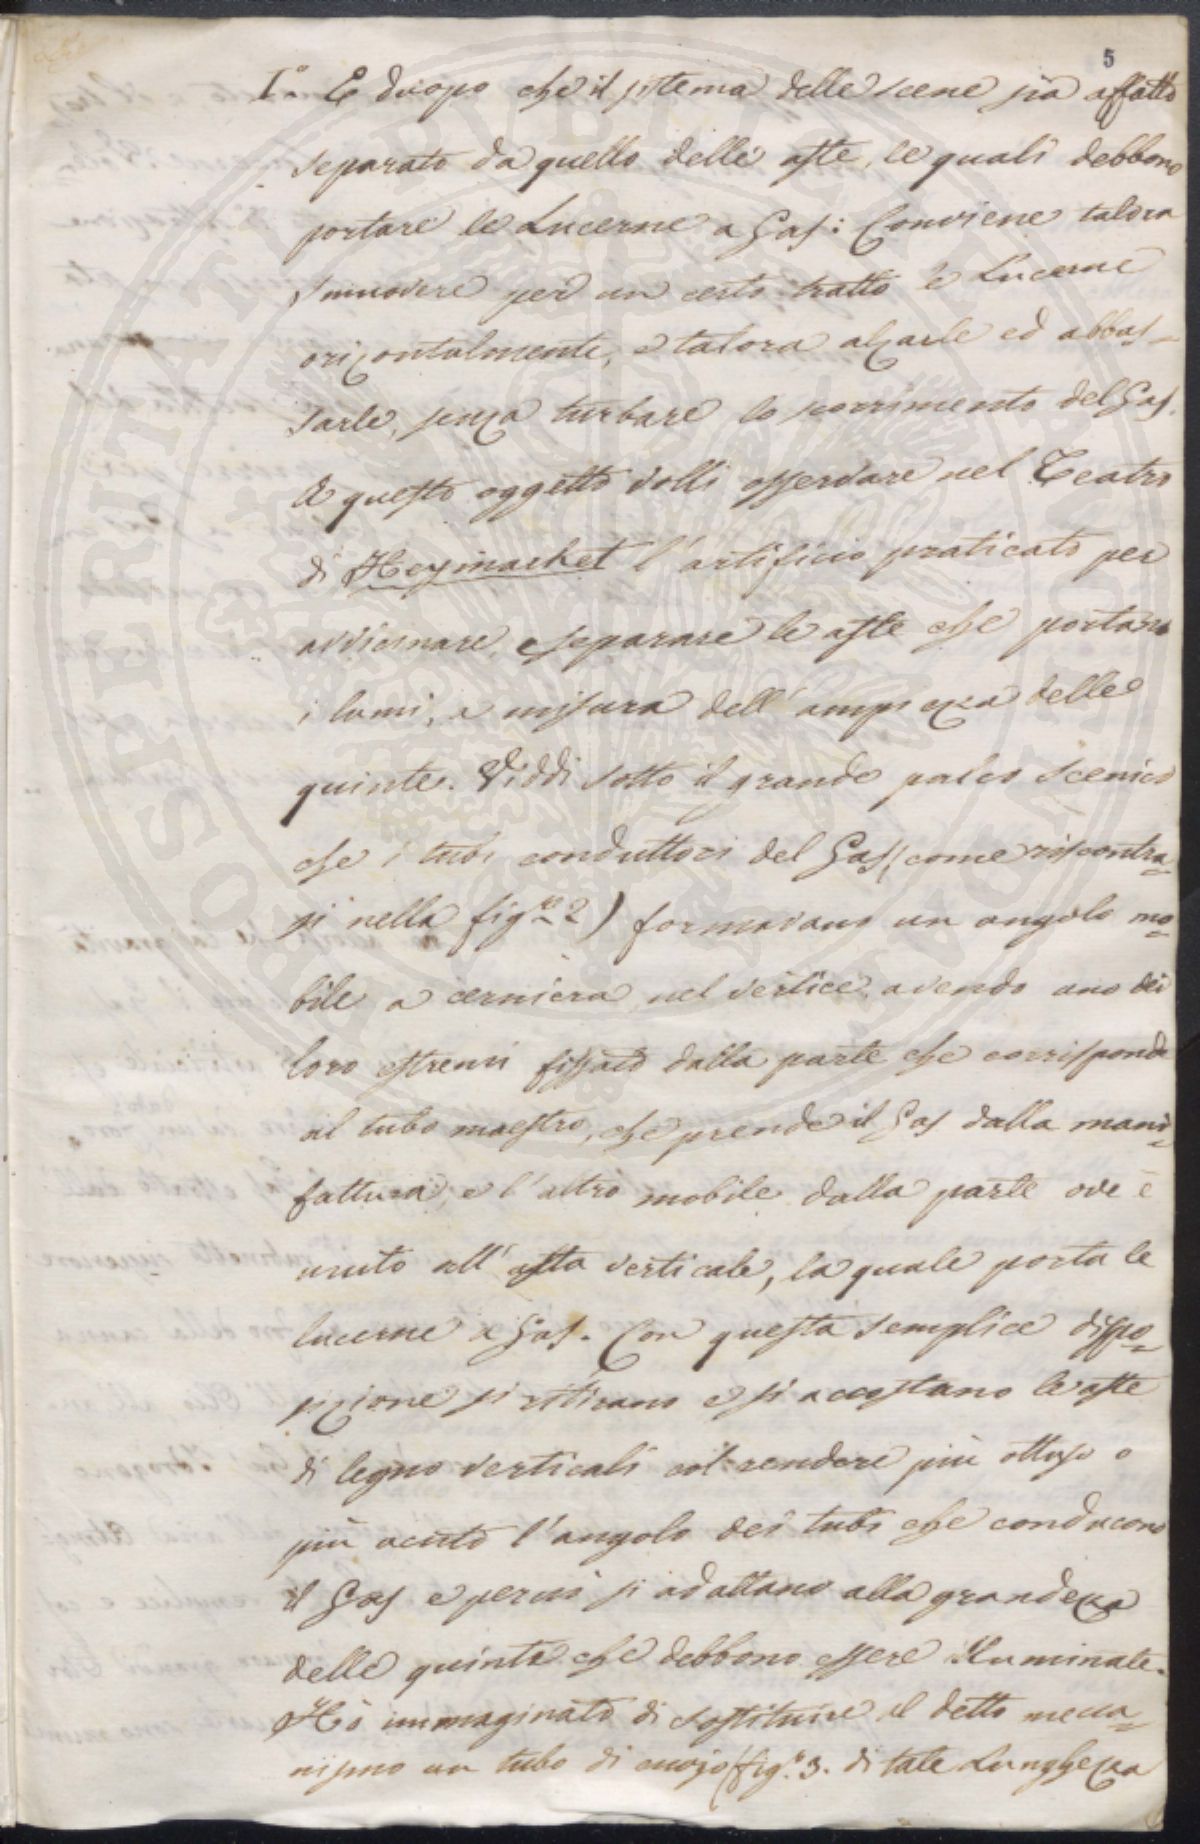 5
I.° E duopo che il sistema delle scene sia affatto
separato da quello delle aste, le quali debbono
portare le Lucerne a Gas: Conviene talora
smuovere per un certo tratto le Lucerne
orizontalmente, e talora alzarle ed abbas-
sarle, senza turbare lo scorrimento del Gas.
A questo oggetto volli osservare nel Teatro
di Heymarket l'artificio praticato per
avvicinare, e separare le aste che portano
i lumi, a misura dell'ampiezza delle
quinte. Viddi sotto il grande palco scenico
che i tubi conduttori del Gas (come riscontra-
si nella fig.re 2) formavano un angolo mo-
bile a cerniera nel vertice, avendo uno dei
loro estremi fissato dalla parte che corrisponde
al tubo maestro, che prende il Gas dalla mani-
fattura, e l'altro mobile dalla parte ove è
unito all'asta verticale, la quale porta le
lucerne a Gas. Con questa semplice dispo-
sizione si ritirano e si accostano le aste
di legno verticali col rendere più ottuso o
più acuto l'angolo dei tubi che conducono
il Gas e perciò si adattano alla grandezza
delle quinte che debbono essere illuminate.
Hò immaginato di sostituire al detto mecca-
nismo un tubo di cuojo (fig.e 3. di tale Lunghezza
PROSPERITATI PUBLICAE AUGENDAE